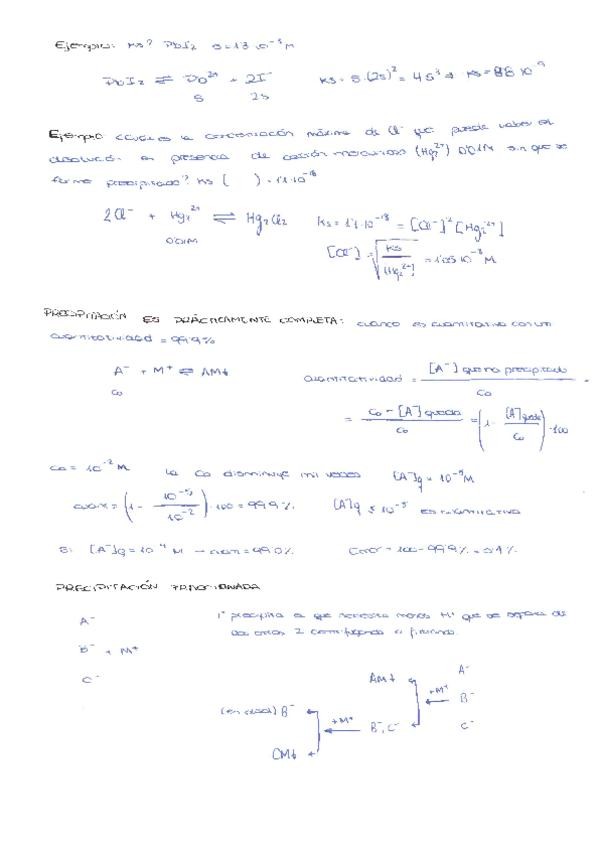 Ejemplo: Ks? PbI2 s=1'3 10⁻³M
PbI2 ⇌ Pb²⁺ + 2I⁻ Ks = s·(2s)² = 4s³ → Ks = 8'8 10⁻⁹
s 2s
Ejemplo: ¿Cuál es la concentración máxima de Cl⁻ que puede haber en
disolución en presencia de catión mercurioso (Hg2²⁺) 0'01M sin que se
forme precipitado? Ks ( ) = 1'1·10⁻¹⁸
2Cl⁻ + Hg2²⁺ ⇌ Hg2Cl2 Ks = 1'1·10⁻¹⁸ = [Cl⁻]² [Hg2²⁺]
0'01M [Cl⁻] = √(Ks/[Hg2²⁺]) = 1'05 10⁻⁸ M
PRECIPITACIÓN ES PRÁCTICAMENTE COMPLETA: cuando es cuantitativa con un
cuantitatividad = 99'9%
A⁻ + M⁺ ⇌ AM↓ cuantitatividad = [A⁻] que ha precipitado / Co
Co
= Co - [A⁻] queda / Co = (1 - [A⁻]queda / Co)·100
Co = 10⁻² M la Co disminuye mil veces [A⁻]q = 10⁻⁵M
cuant = (1 - 10⁻⁵/10⁻²)·100 = 99'9% [A⁻]q ≤ 10⁻⁵ es cuantitativa
Si [A⁻]q = 10⁻⁴ M → cuan = 99'0% Error = 100 - 99'9% = 0'1%
PRECIPITACIÓN FRACCIONADA
A⁻ 1º precipita el que necesita menos M⁺ que se separa de
B⁻ + M⁺ los otros 2 centrifugando o filtrando.
C⁻
AM↓ A⁻
+M⁺ B⁻
(en disol) B⁻ +M⁺ B⁻, C⁻ C⁻
CM↓